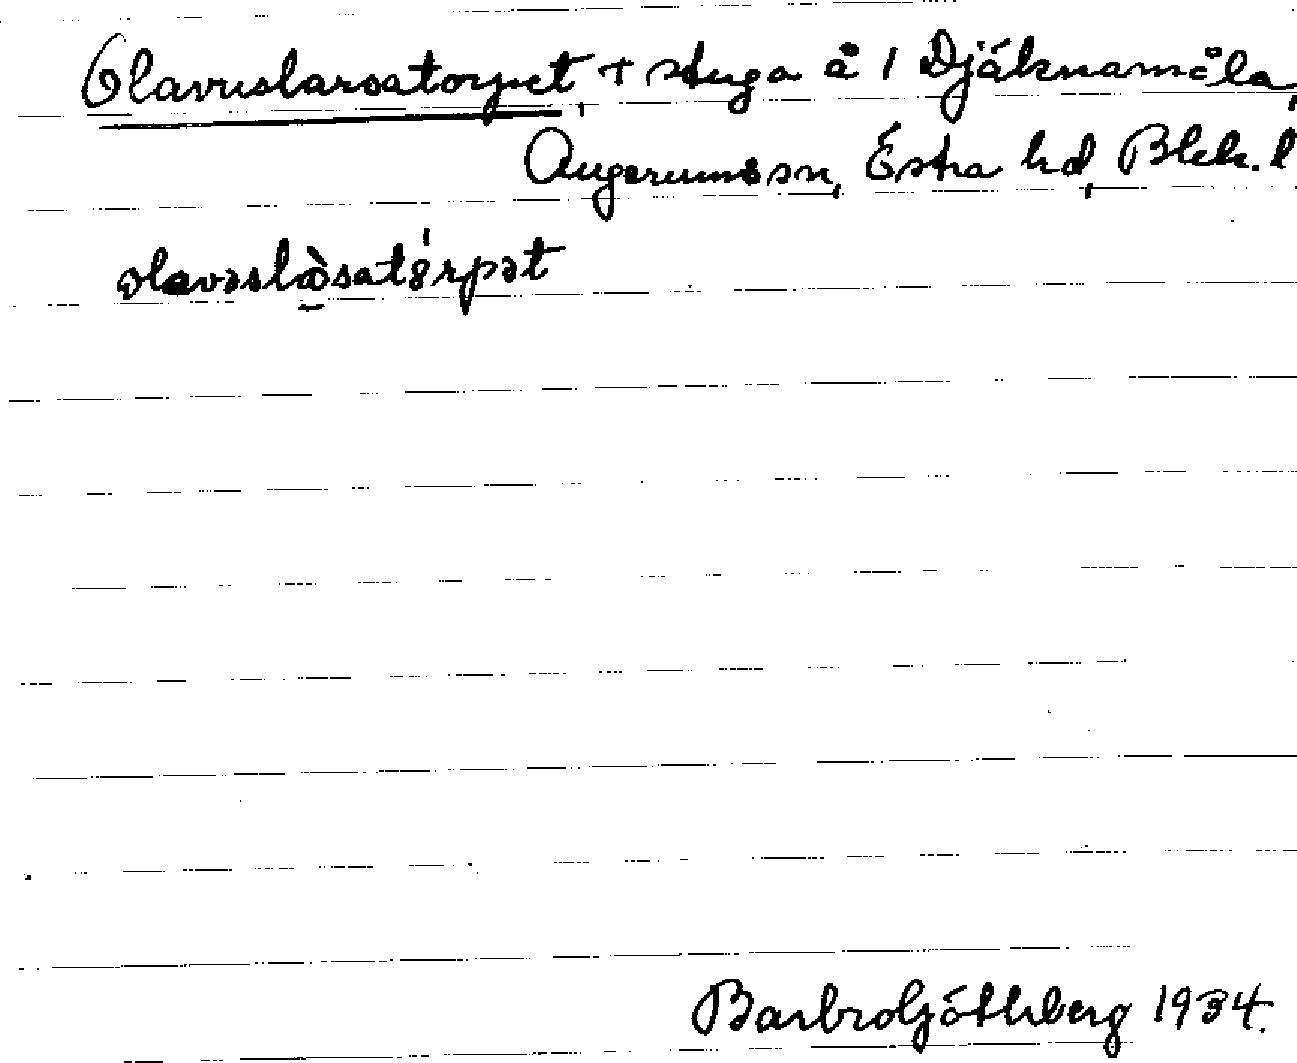 Olavuslarsatorpet, + stuga å 1 Djäknamåla,
Augerumssn, Östra hd, Blek. l
Barbro Göthberg 1934.